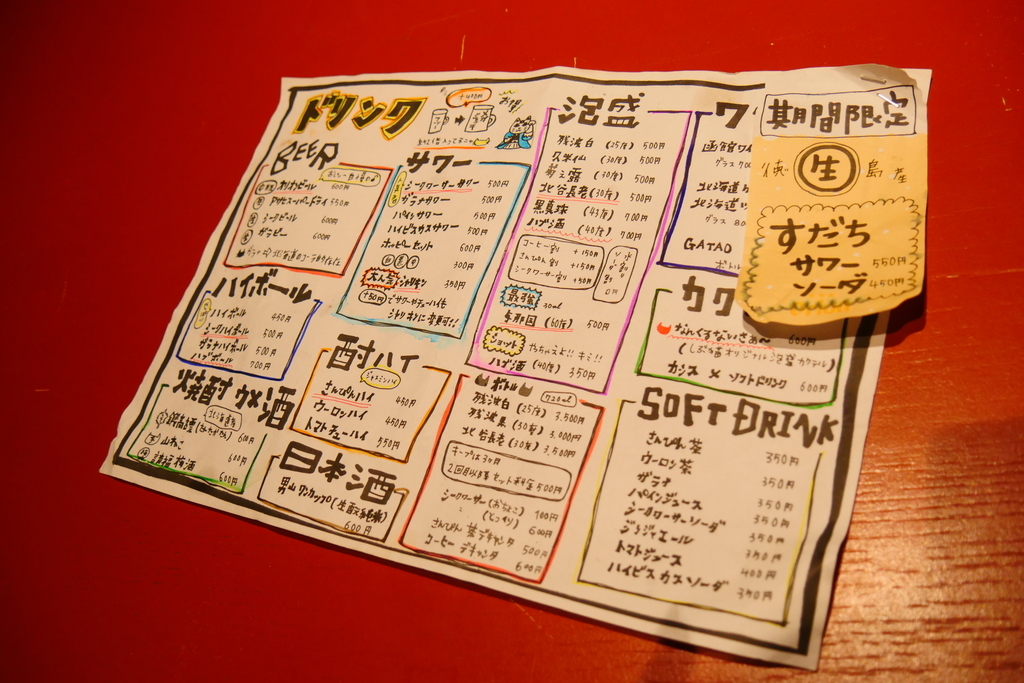 ドリンク
+400円
お得!
BEER
オリオンビール 600円
アサヒスーパードライ 550円
シークビール 600円
ガラビー 600円
サワー
シークワーサーサワー 500円
ガラナサワー 500円
パインサワー 500円
ハイビスカスサワー 500円
ホッピーセット 600円
300円
+50円でサワーやチューハイも
変更可!!
ハイボール
ハイボール 450円
シークハイボール 500円
ガラナハイボール 500円
ハブボール 700円
酎ハイ
ジャスミンハイ
さんぴんハイ 450円
ウーロンハイ 450円
トマトチューハイ 550円
焼酎 ウメ酒
600円
山ねこ 600円
請福梅酒 600円
日本酒
男山ワンカップ(生酛純米)
600円
泡盛
残波白(25度) 500円
久米仙(30度) 500円
菊之露(30度) 500円
北谷長老(30度) 600円
黒真珠(43度) 700円
ハブ酒(40度) 700円
コーヒー割 +150円
さんぴん割 +150円
シークワーサー割 +150円
水割
ソーダ割
ロック
最強 30ml
与那国(60度) 500円
ショット
やっちゃえ!! キミ!!
ハブ酒(40度) 350円
ボトル 720ml
残波白(25度) 3,500円
残波黒(30度) 3,000円
北谷長老(30度) 3,500円
キープは3ヶ月
2回目以降セット料金500円
シークワーサー(おちょこ) 100円
〃(とっくり) 600円
さんぴん茶デキャンタ 500円
コーヒーデキャンタ 600円
ワ
函館ワイ
グラス 700
北海道
北海道
グラス 80
GATAO
ボトル
カク
なんくるないさぁ〜 600円
(しぶさ菌オリジナル泡盛カクテル)
カシス × ソフトドリンク 600円
SOFT DRINK
さんぴん茶 350円
ウーロン茶 350円
ガラナ 350円
パインジュース 350円
シークワーサーソーダ 350円
ジンジャエール 350円
トマトジュース 400円
ハイビスカスソーダ 350円
期間限定
徳 生 島産
すだち
サワー 550円
ソーダ 450円